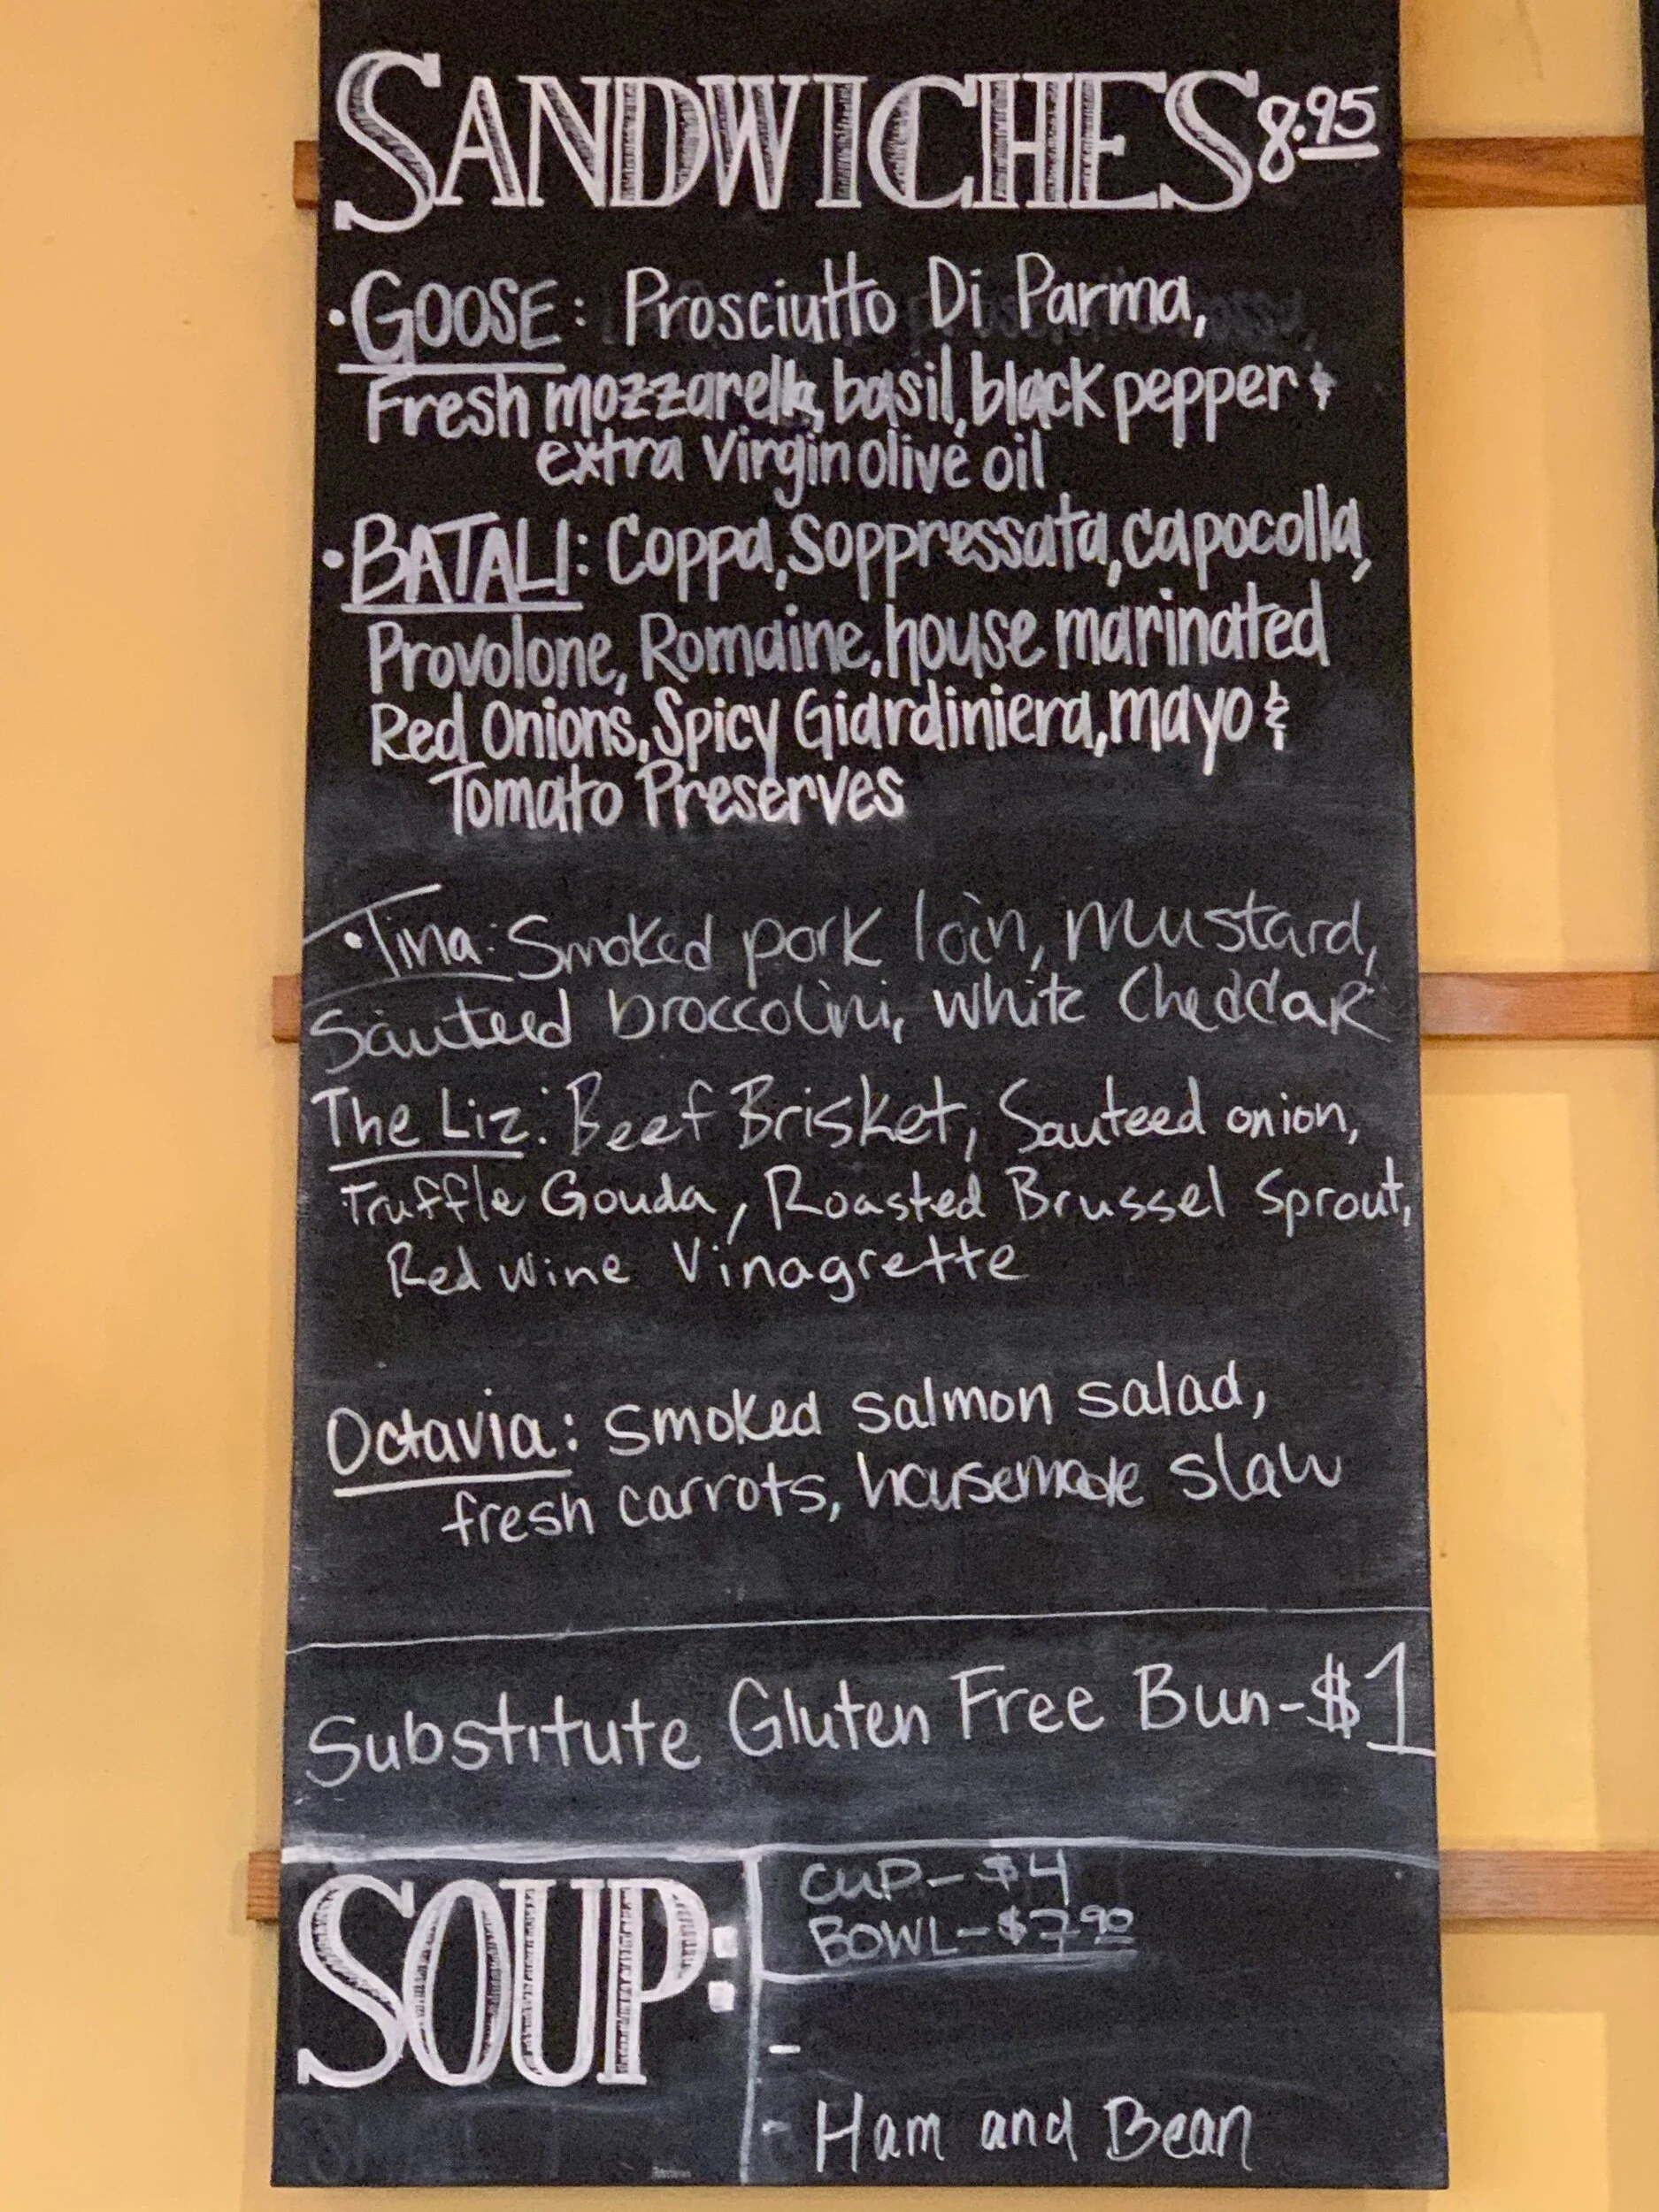 SANDWICHES 8.95
·GOOSE: Prosciutto Di Parma,
Fresh mozzarella, basil, black pepper &
extra virgin olive oil
·BATALI: Coppa, Soppressata, capocolla,
Provolone, Romaine, house marinated
Red Onions, Spicy Giardiniera, mayo &
Tomato Preserves
·Tina: Smoked pork loin, mustard,
Sauteed broccolini, white Cheddar
The Liz: Beef Brisket, Sauteed onion,
Truffle Gouda, Roasted Brussel Sprout,
Red Wine Vinagrette
Octavia: smoked salmon salad,
fresh carrots, housemade slaw
Substitute Gluten Free Bun-$1
SOUP:
CUP-$4
BOWL-$7.90
-
- Ham and Bean